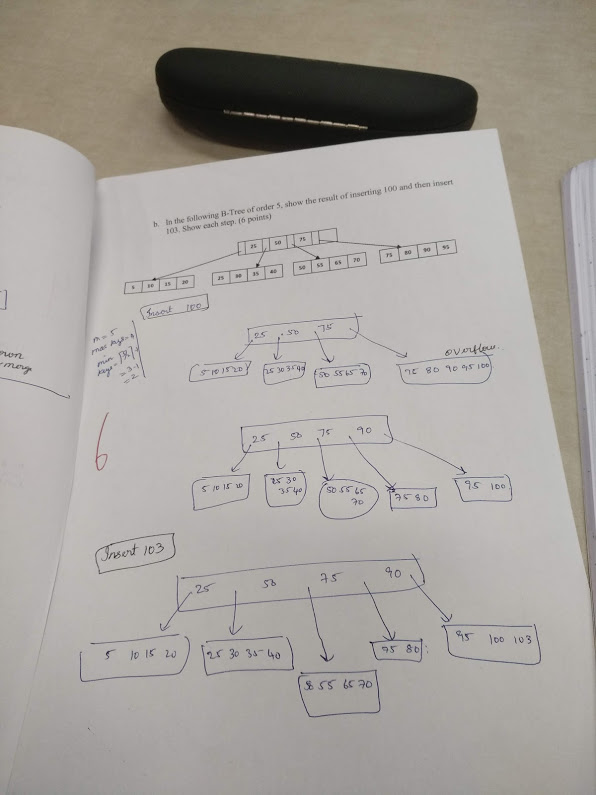 b. In the following B-Tree of order 5, show the result of inserting 100 and then insert
103. Show each step. (6 points)
25 50 75
5 10 15 20
25 30 35 40
50 55 65 70
75 80 90 95
Insert 100
m = 5
max keys = 4
min
keys =
= 3-1
= 2
own
merge
25 50 75
overflow
5 10 15 20
25 30 35 40
50 55 65 70
75 80 90 95 100
6
25 50 75 90
5 10 15 20
25 30
35 40
50 55 65
70
75 80
95 100
Insert 103
25 50 75 90
5 10 15 20
25 30 35 40
50 55 65 70
75 80
95 100 103